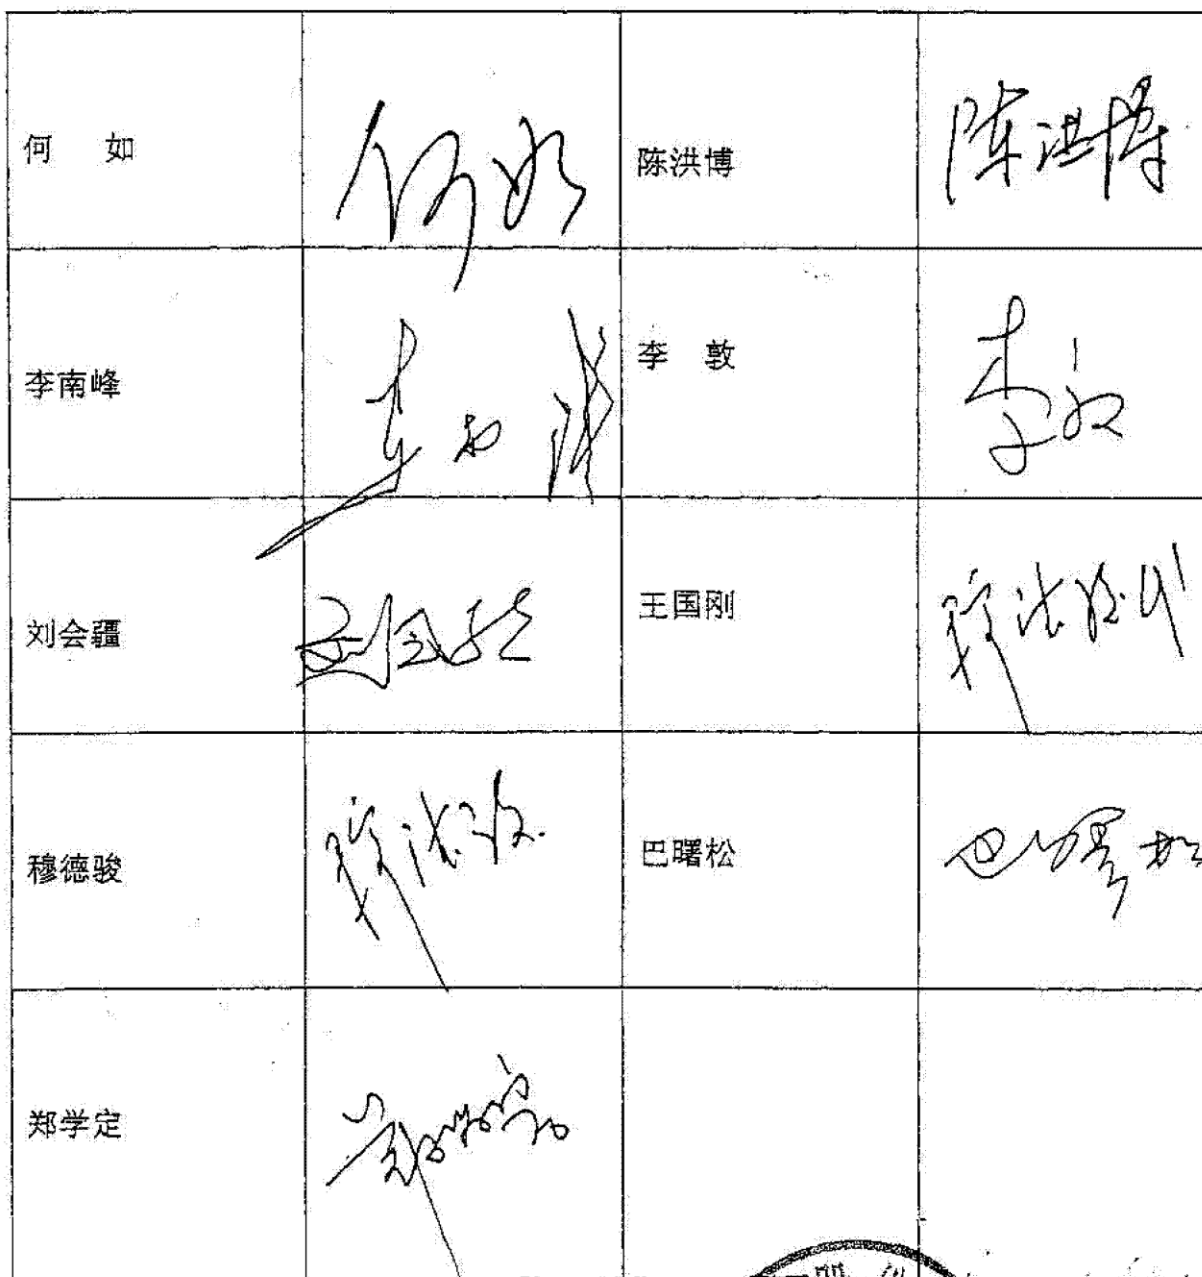 何 如 何如 陈洪博 陈洪博
李南峰 李南峰 李 敦 李敦
刘会疆 刘会疆 王国刚 穆德骏代
穆德骏 穆德骏 巴曙松 巴曙松
郑学定 郑学定